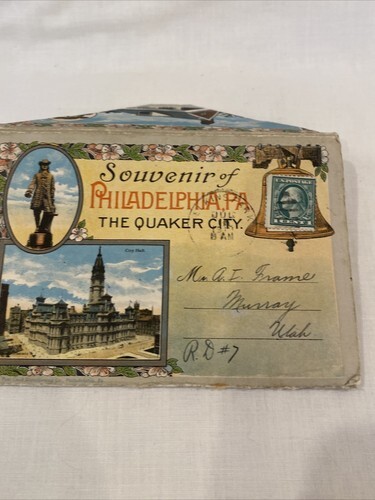 Souvenir of
PHILADELPHIA, PA.
THE QUAKER CITY.
U.S. POSTAGE
CENTS
JUL
8 AM
City Hall.
A. I. Frame
Murray
Utah
R.D #7